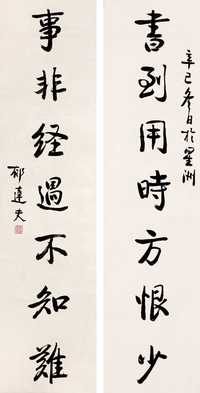 書到用時方恨少
辛巳冬日於星洲
事非经過不知難
郁達夫